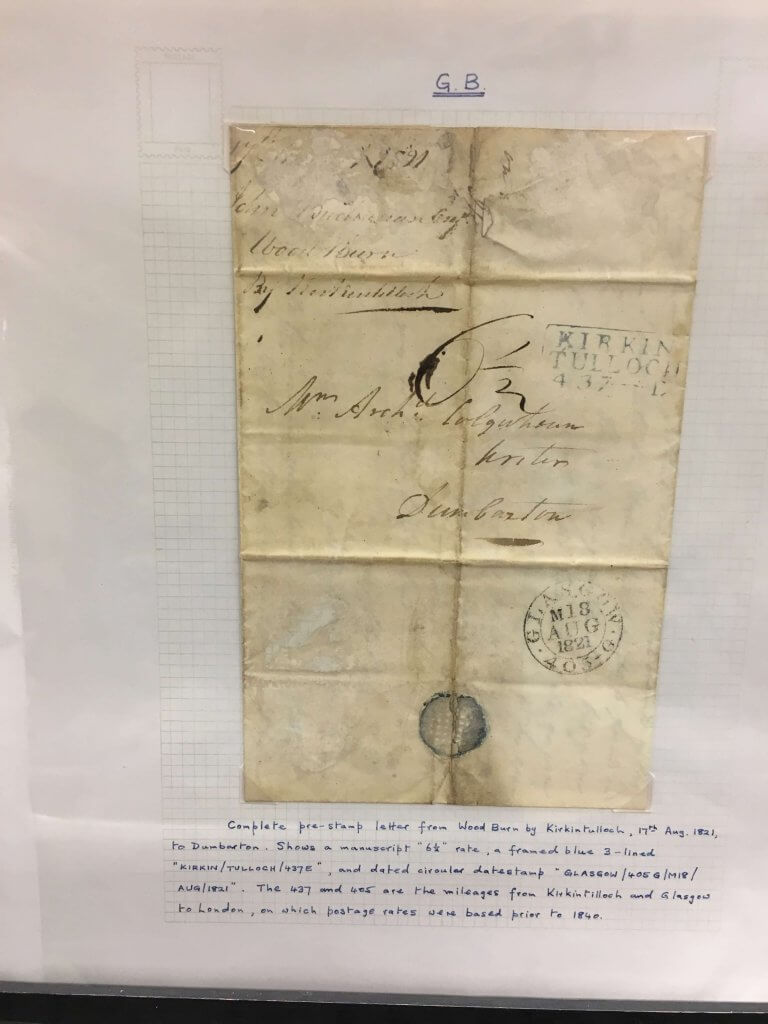 G.B.
17th 1821
John Buchanan Esqr.
Wood Burn
By Kirkintulloch
6 1/2
KIRKIN
TULLOCH
437
Mr. Archd. Colquhoun
Writer
Dumbarton
GLASGOW
M18
AUG
1821
405-G
Complete pre-stamp letter from Wood Burn by Kirkintulloch, 17th Aug. 1821,
to Dumbarton. Shows a manuscript "6½" rate, a framed blue 3-lined
"KIRKIN/TULLOCH/437E", and dated circular datestamp "GLASGOW/405G/M18/
AUG/1821". The 437 and 405 are the mileages from Kirkintilloch and Glasgow
to London, on which postage rates were based prior to 1840.